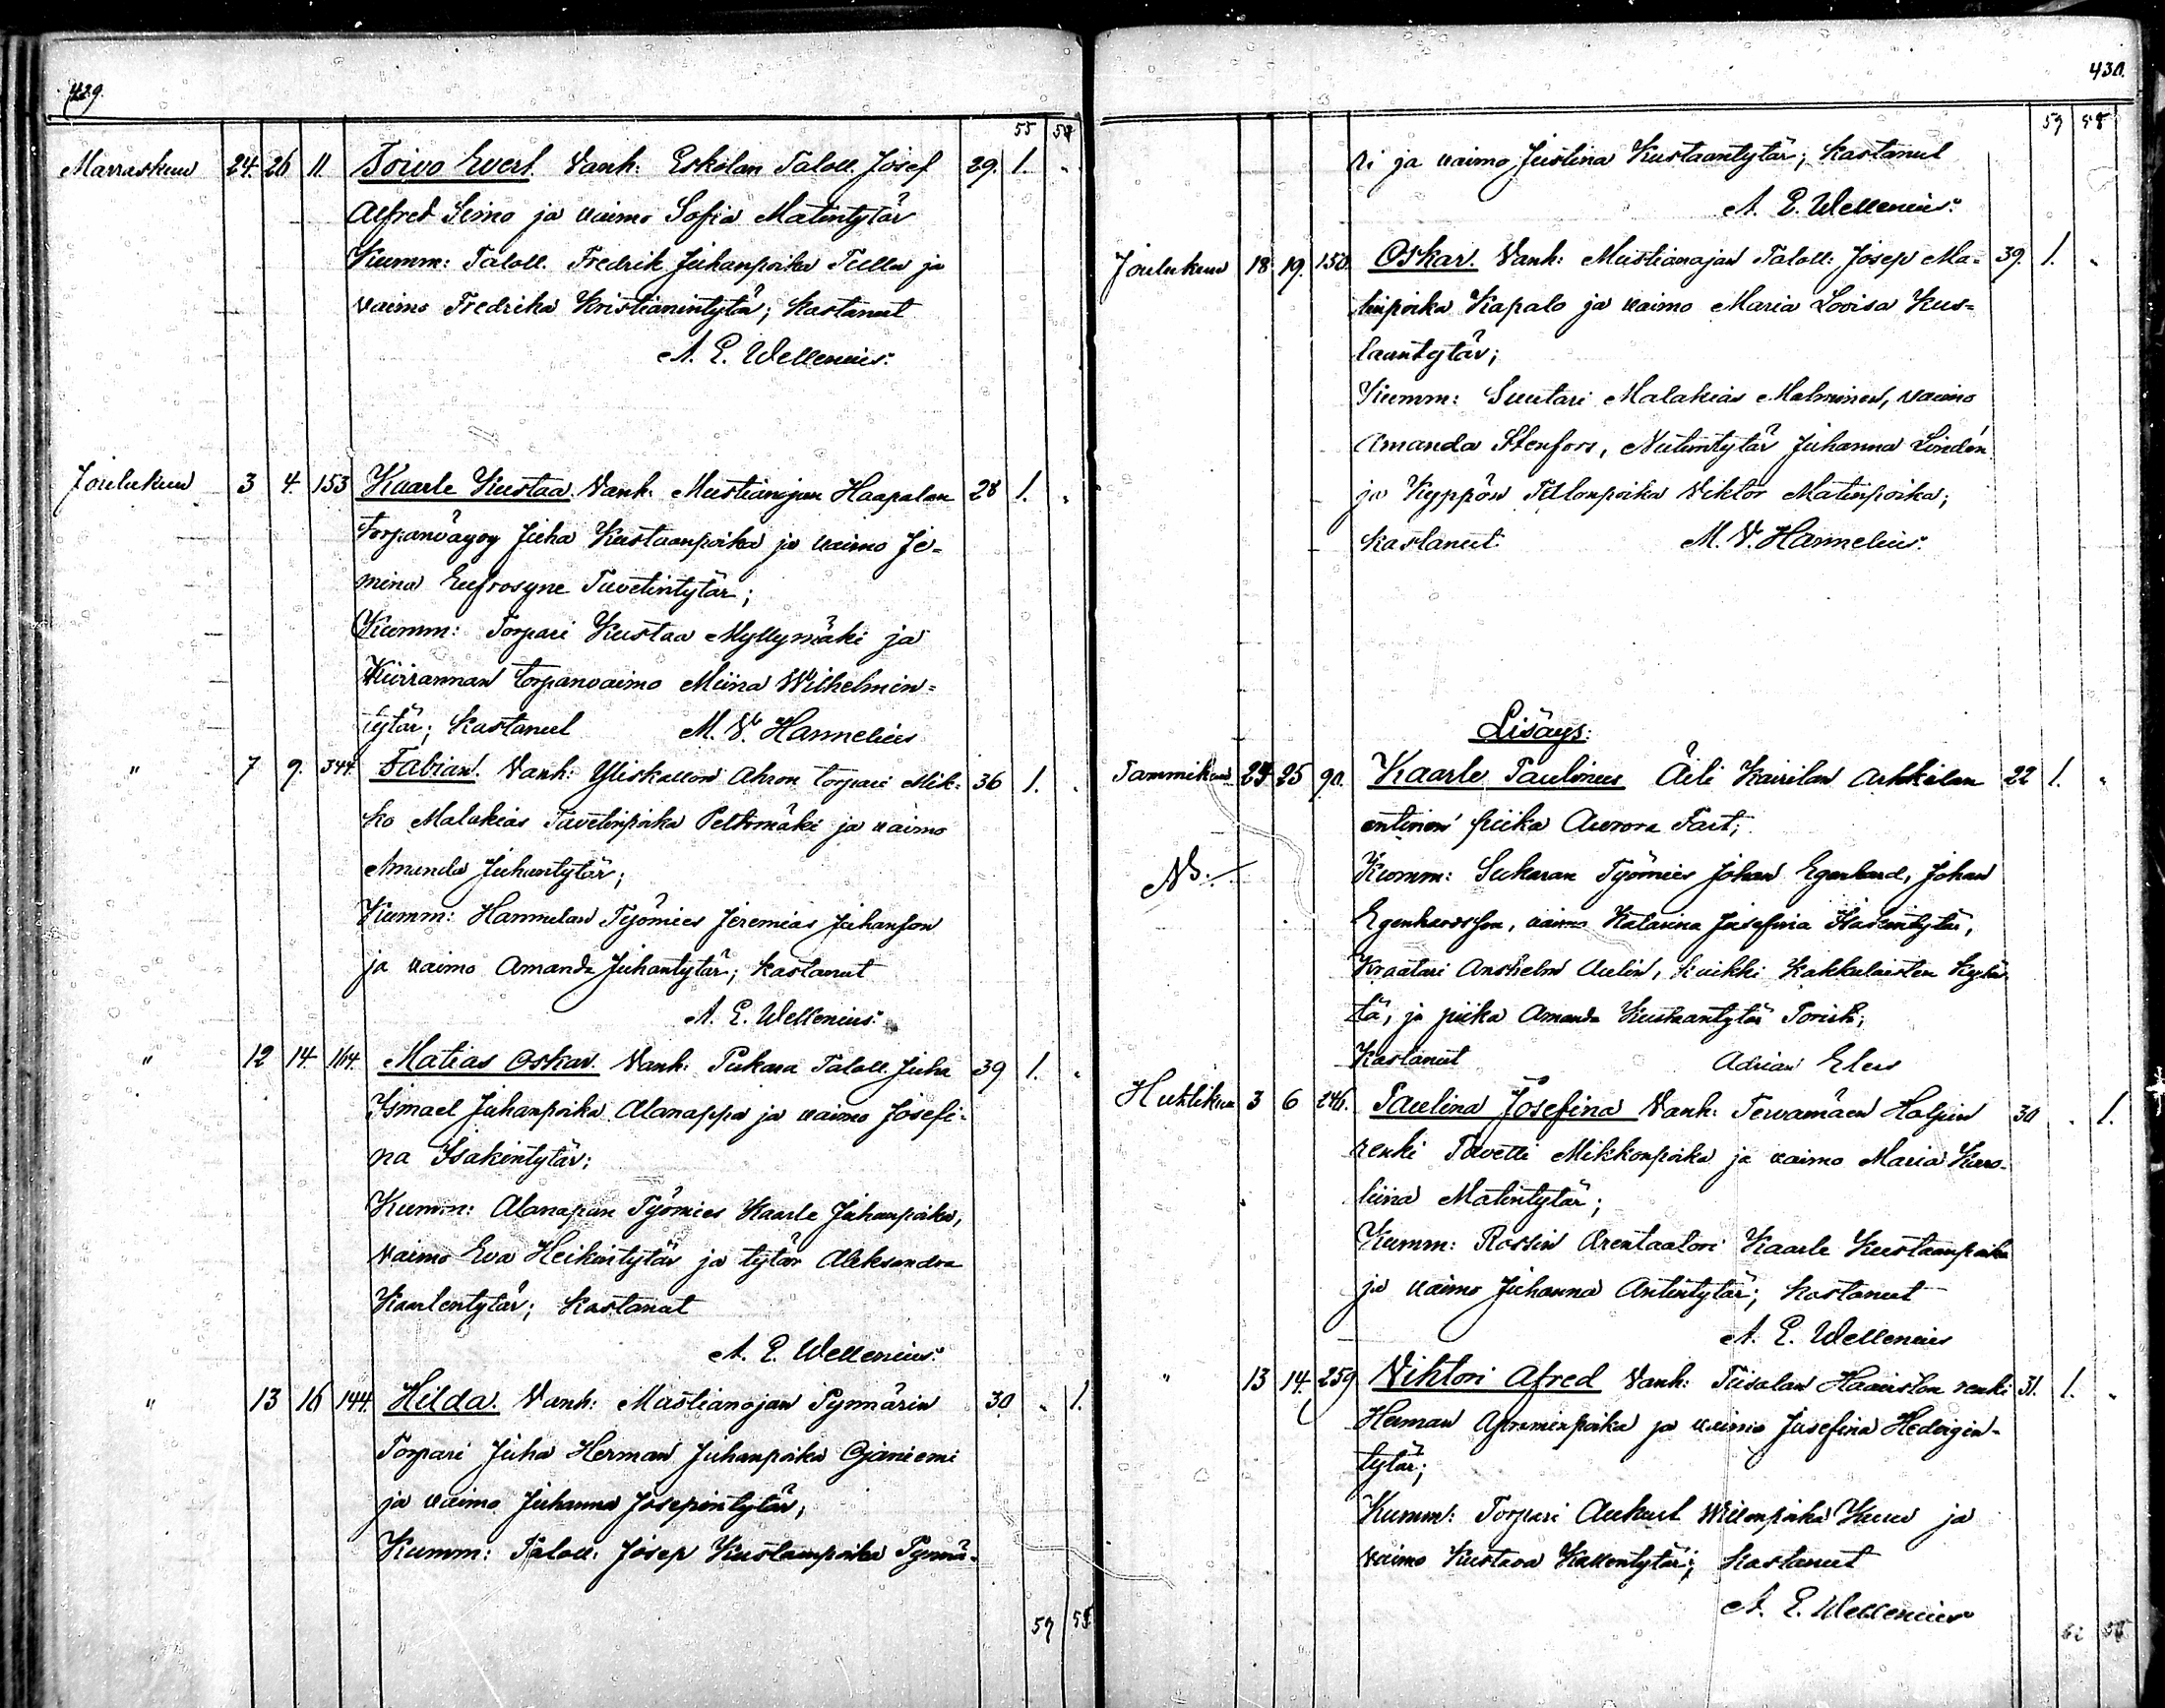 429.
55 58
Marraskuu 24. 26 11 Toivo Evert. Vanh: Eskolan Taloll. Josef 29. 1. "
Alfred Seimo ja vaimo Sofia Matintytär
Kumm: Taloll. Fredrik Juhanpoika Tulla ja
vaimo Fredrika Kristianintytär; kastanut
A. E. Wellenius.
Joulukuu 3 4. 153 Kaarle Kustaa. Vanh. Mustianojan Haapalan 28 1. "
torpanvävy Juha Kustaanpoika ja vaimo Je=
mina Eufrosyne Tavetintytär;
Kumm: Torpari Kustaa Myllymäki ja
torpanvaimo Miina Wilhelmin=
tytär; kastanut M. V. Hannelius
" 7 9. 344. Fabian. Vanh: Yliskallon Ahron torpari Mik= 36 1. "
ko Malakias Tavetinpoika Peltomäki ja vaimo
Amanda Juhantytär;
Kumm: Hannulan Työmies Jeremias Juhanson
ja vaimo Amanda Juhantytär; kastanut
A. E. Wellenius.
" 12 14 164. Matias Oskar. Vanh: Pukara Taloll. Juha 39 1. "
Ismael Juhanpoika Alanappa ja vaimo Josefi=
na Isakintytär;
Kumm: Alanapan Työmies Kaarle Juhanpoika,
vaimo Eva Heikintytär ja tytär Aleksandra
Kaarlentytär; kastanut
A. E. Wellenius.
" 13 16 144. Hilda. Vanh: Mustianojan Pynnärin 30. " 1.
Torpari Juha Herman Juhanpoika Ojaniemi
ja vaimo Juhanna Josepintytär;
Kumm: Taloll. Josep Kustaanpoika Pynnä=
57 58
430.
57 58
ri ja vaimo Justina Kustaantytär; kastanut
A. E. Wellenius.
Joulukuu 18 19. 150. Oskar. Vanh: Mustianojan Taloll. Josep Ma= 39. 1. "
tinpoika Kapalo ja vaimo Maria Lovisa Kus=
taantytär;
Kumm: Suutari Malakias Malminen, vaimo
Amanda Stenfors, Juhanna Lindén
ja Kyppön Viktor Matinpoika;
kastanut M. V. Hannelius.
Lisäys:
Tammikuu 25 90. Kaarle Paulinus Äiti Kairilan Arkkilan 22 1. "
entinen piika Aurora Fart;
NB. Kumm: Sukaran Työmies Johan Egenhard, Johan
Egenhardsson, vaimo Katarina Josefina Isakintytär,
Kraatari Anshelm Aulin, kaikki Kakkulaisten
tä, ja piika Amanda Kustaantytär
Kastanut Adrian Elers
Huhtikuu 3 6 246. Paulina Josefina Vanh: Tervamäen Holpin 30 . 1.
renki Tavetti Mikkonpoika ja vaimo Maria Karo=
liina Matintytär;
Kumm: Rossin Arentaatori Kaarle Kustaanpoika
ja vaimo Juhanna Antintytär; kastanut
A. E. Wellenius
" 13 14. 259 Viktori Afred Vanh: Tiisalan Haaviston renki 31. 1. "
Herman Apraminpoika ja vaimo Josefina Hedvigin=
tytär;
Kumm: Torpari Aukust Willenpoika Kuus ja
vaimo Kustava Kallentytär; kastanut
A. E. Wellenius
62 58